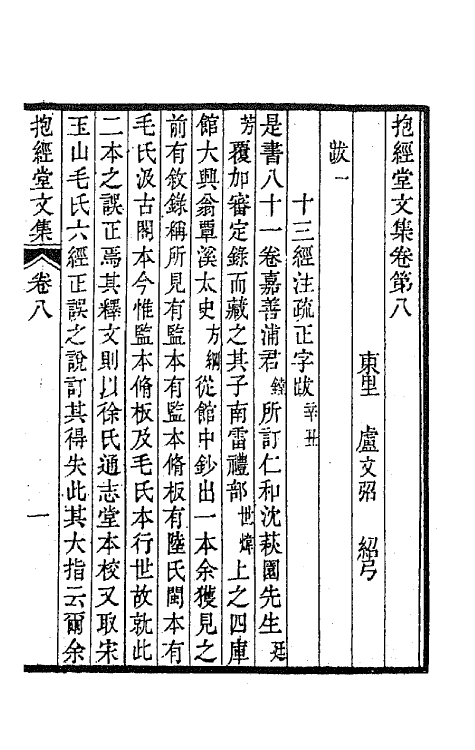 抱經堂文集卷第八
東里 盧文弨 紹弓
跋一
十三經注疏正字跋辛丑
是書八十一卷嘉善浦君鏜所訂仁和沈萩園先生廷
芳覆加審定錄而藏之其子南雷禮部世煒上之四庫
館大興翁覃溪太史方綱從館中鈔出一本余獲見之
前有敘錄稱所見有監本有監本脩板有陸氏閩本有
毛氏汲古閣本今惟監本脩板及毛氏本行世故就此
二本之誤正焉其釋文則以徐氏通志堂本校又取宋
玉山毛氏六經正誤之說訂其得失此其大指云爾余
抱經堂文集 卷八 一